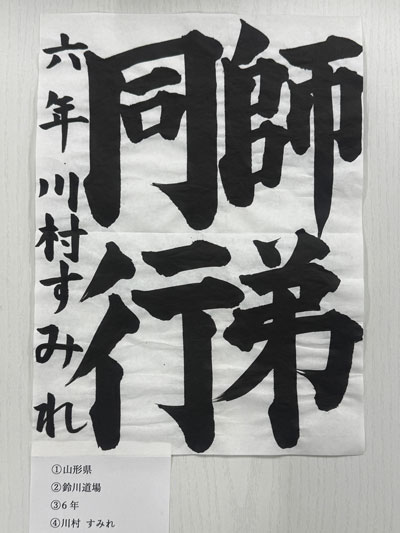 師弟
同行
六年 川村すみれ
①山形県
②鈴川道場
③6年
④川村 すみれ